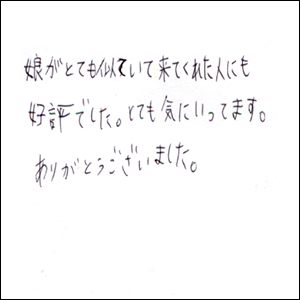 娘がとても似ていて来てくれた人にも
好評でした。とても気にいってます。
ありがとうございました。